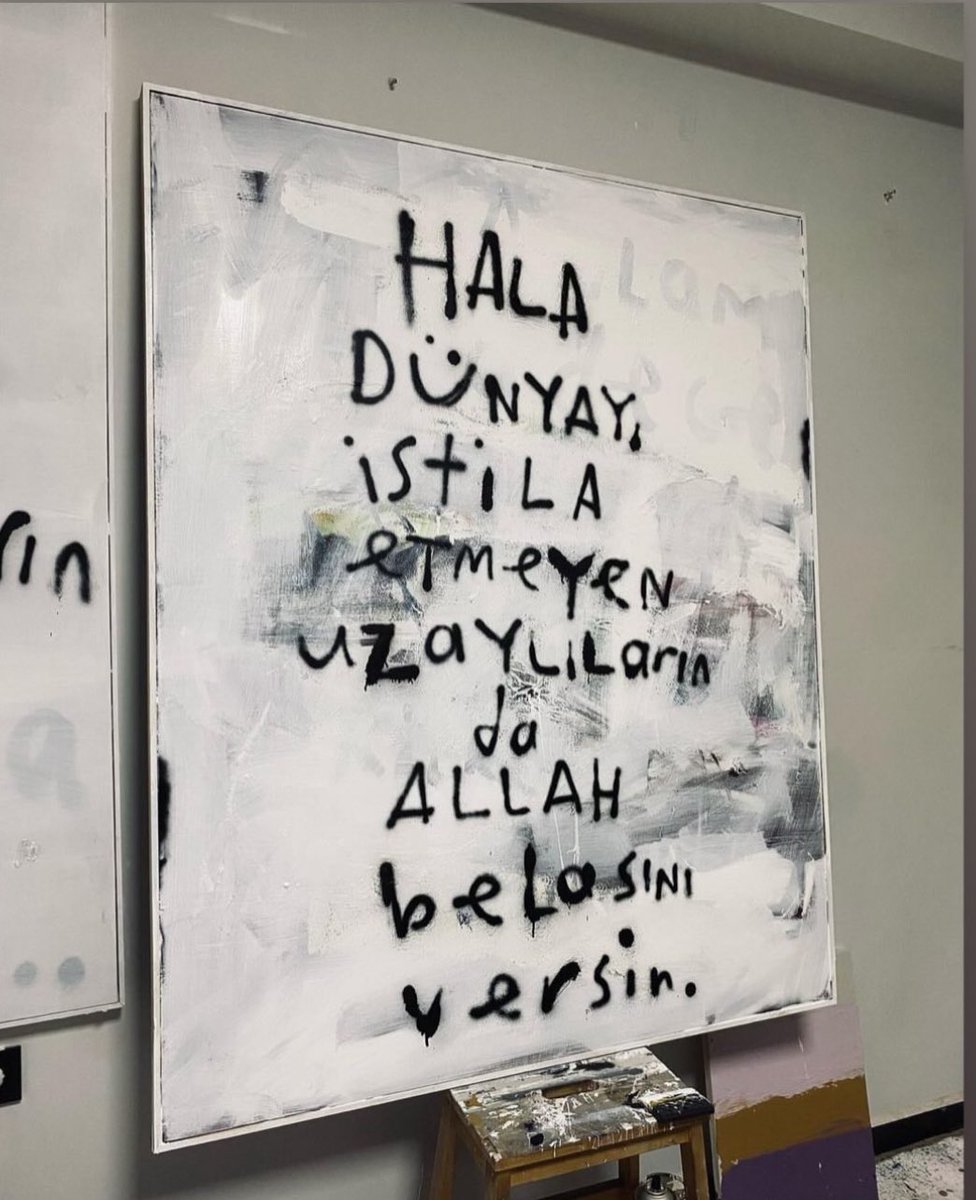 HALA
DÜNYAYı
istiLA
eTmeYeN
uzaYLiLarın
da
ALLAH
beLasıNı
versin.
rın